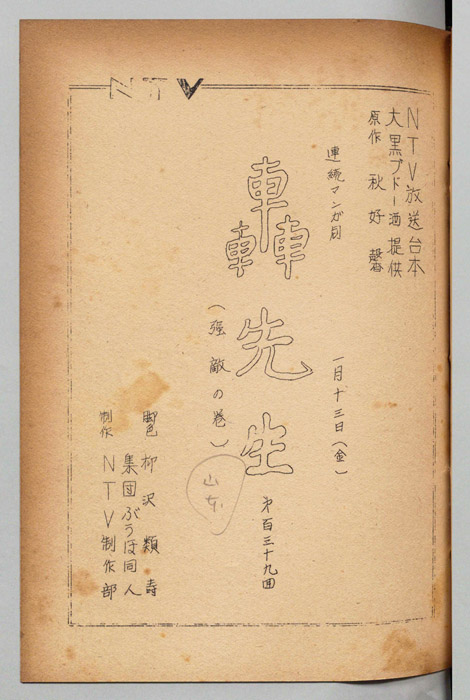 NTV
NTV放送台本
大黒ブドー酒提供
原作 秋好馨
連続マンガ劇
轟先生
一月十三日(金)
(强敵の巻)
山本
㐧百三十九回
脚色 柳沢類寿
集団ぶうほ同人
制作 NTV制作部